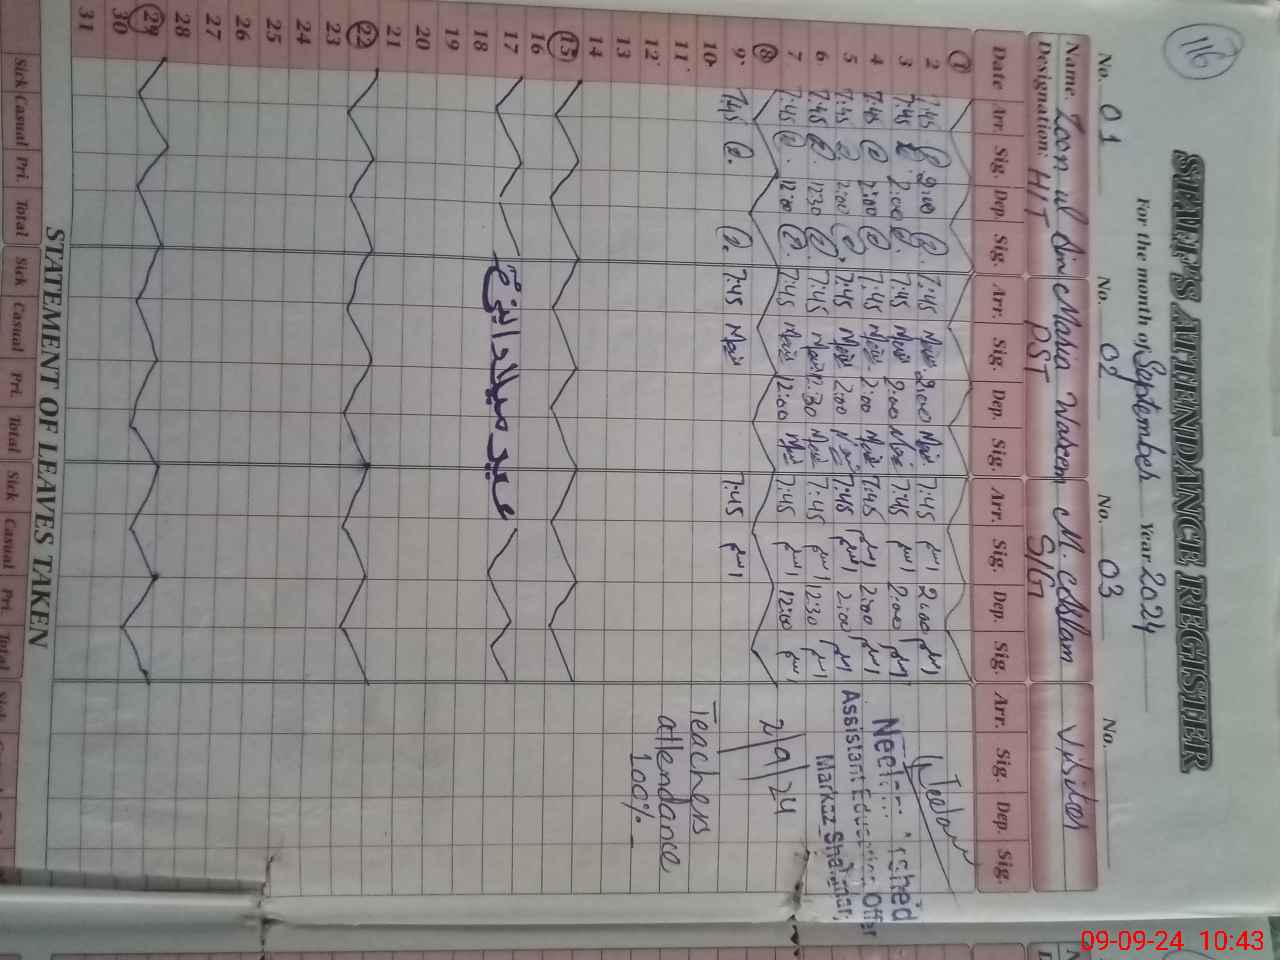 116
STAFF'S ATTENDANCE REGISTER
For the month of September Year 2024
No. 01 No. 02 No. 03 No.
Name: Zoon ul Ain Maria Waseem M. Aslam Visitor
Designation: HT PST SIG
Date Arr. Sig. Dep. Sig. Arr. Sig. Dep. Sig. Arr. Sig. Dep. Sig. Arr. Sig. Dep. Sig.
1
2 7:45 2:00 7:45 2:00 7:45 2:00
3 7:45 2:00 7:45 2:00 7:45 2:00
4 7:45 2:00 7:45 2:00 7:45 2:00
5 7:45 2:00 7:45 2:00 7:45 2:00
6 7:45 12:30 7:45 12:30 7:45 12:30
7 7:45 12:00 7:45 12:00 7:45 12:00
8
9 7:45 7:45 7:45
10
11
12
13
14
15
16
17 عید میلادالنبیؐ
18
19
20
21
22
23
24
25
26
27
28
29
30
31
Assistant Education Officer
Markaz Shalimar,
2/9/24
Teachers
attendance
100%
STATEMENT OF LEAVES TAKEN
Sick Casual Pri. Total Sick Casual Pri. Total Sick Casual Pri. Total
09-09-24 10:43